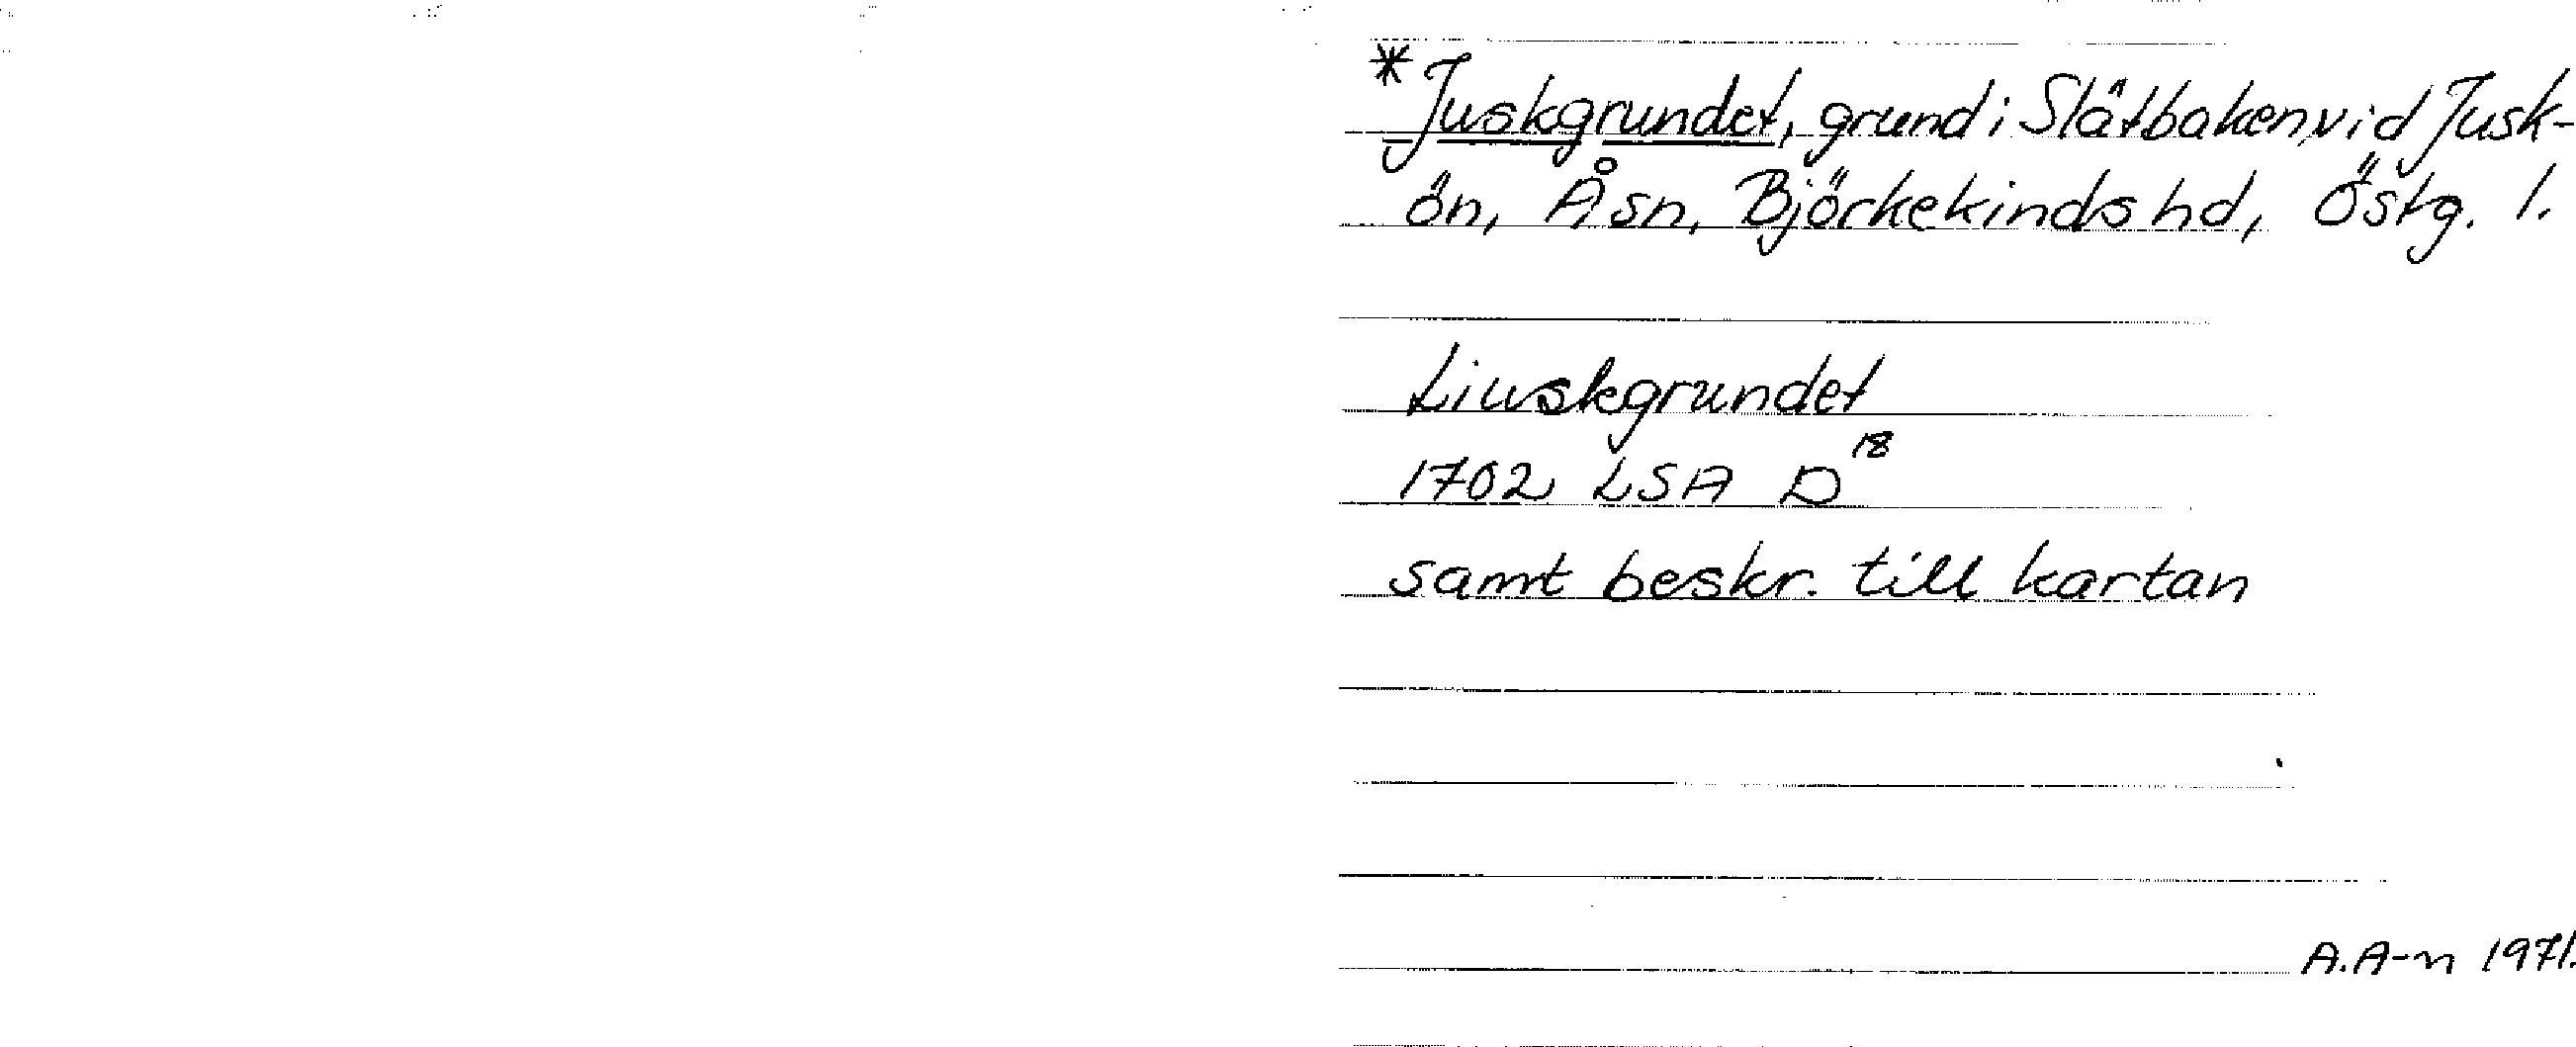 *Juskgrundet, grund i Slätbaken, vid Jusk-
ön, Å sn, Björkekinds hd, Östg. l.
Liuskgrundet
1702 LSA D¹⁸
samt beskr. till kartan
A.A-n 1971.